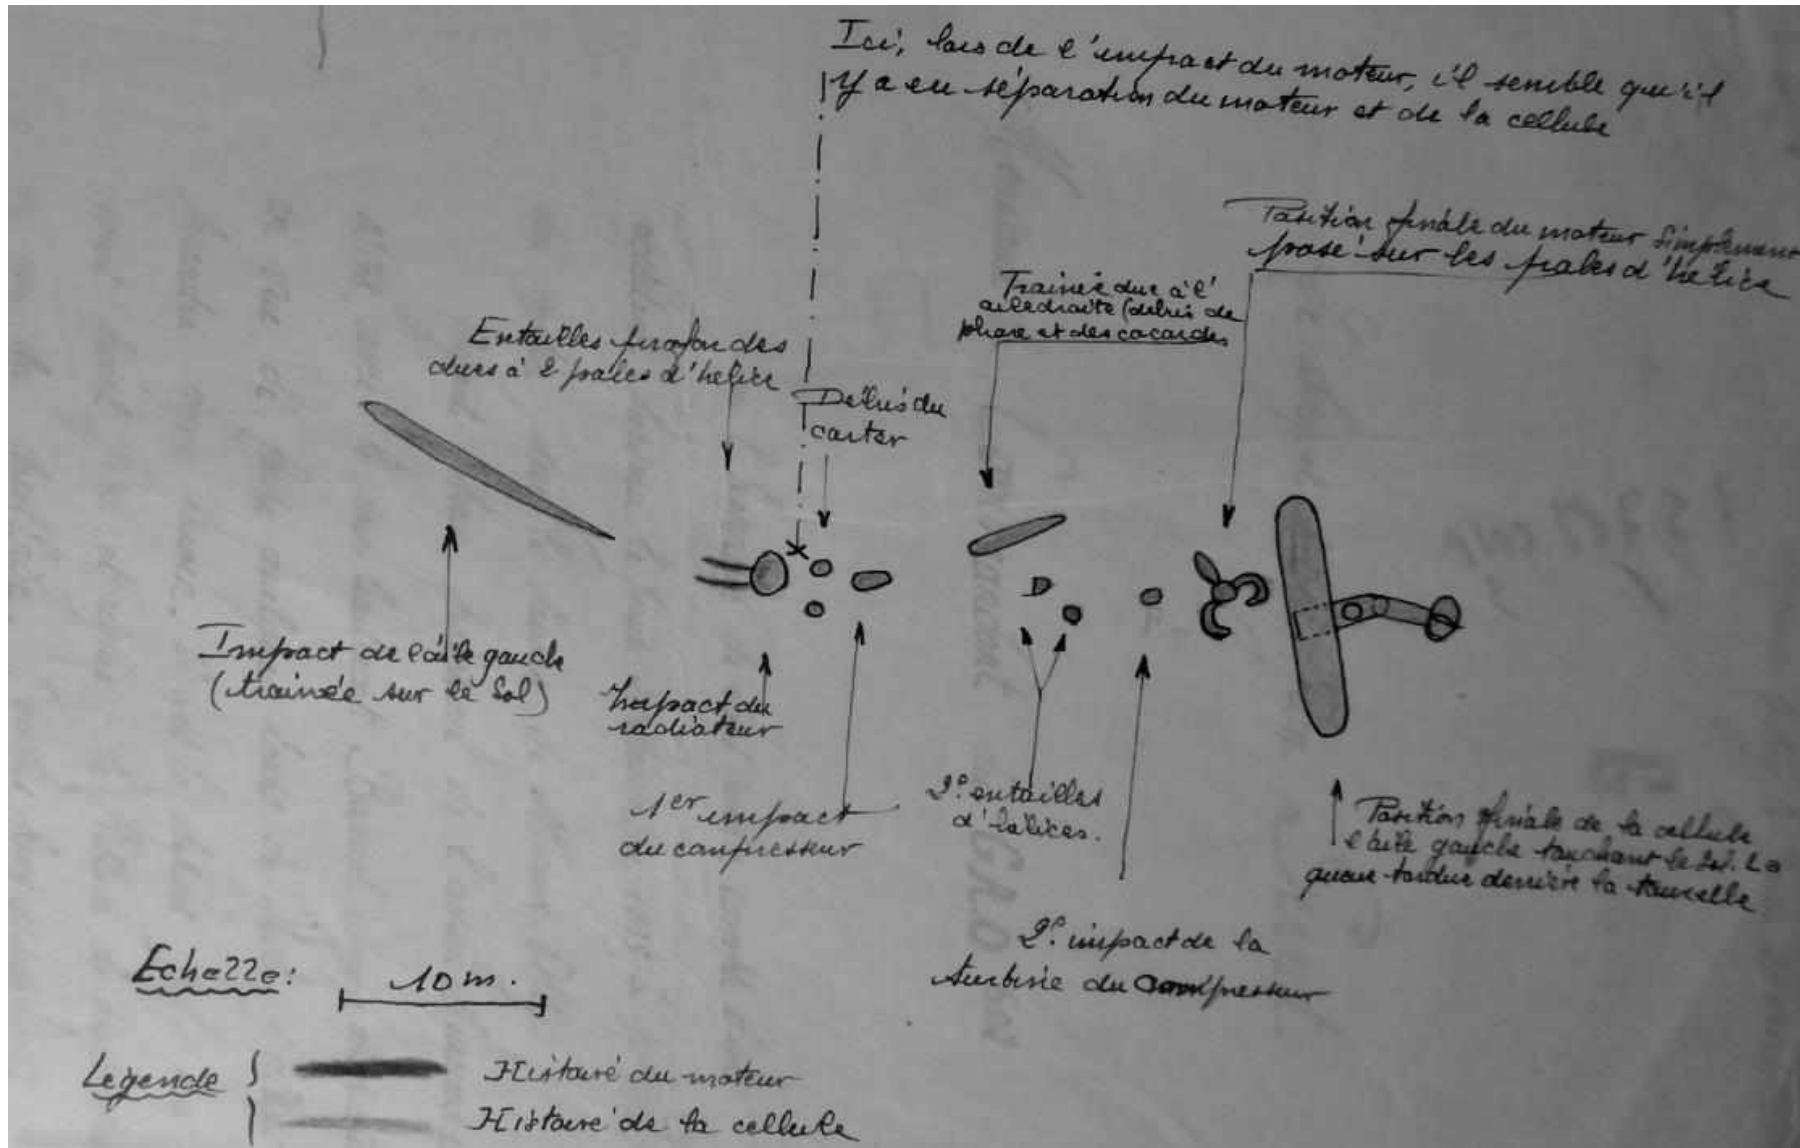 Ici, lors de l'impact du moteur, il semble qu'il
y a eu séparation du moteur et de la cellule
Position finale du moteur simplement
posé sur les pales d'hélice
Trainée due à l'
aile droite (débris de
phare et des cocardes
Entailles profondes
dues à 2 pales d'hélice
Débris du
carter
Impact de l'aile gauche
(trainée sur le sol)
Impact du
radiateur
1er impact
du compresseur
2e entailles
d'hélices.
2e impact de la
turbine du compresseur
Position finale de la cellule
l'aile gauche touchant le sol. La
queue tordue derrière la
Echelle:
10 m.
Légende
Histoire du moteur
Histoire de la cellule